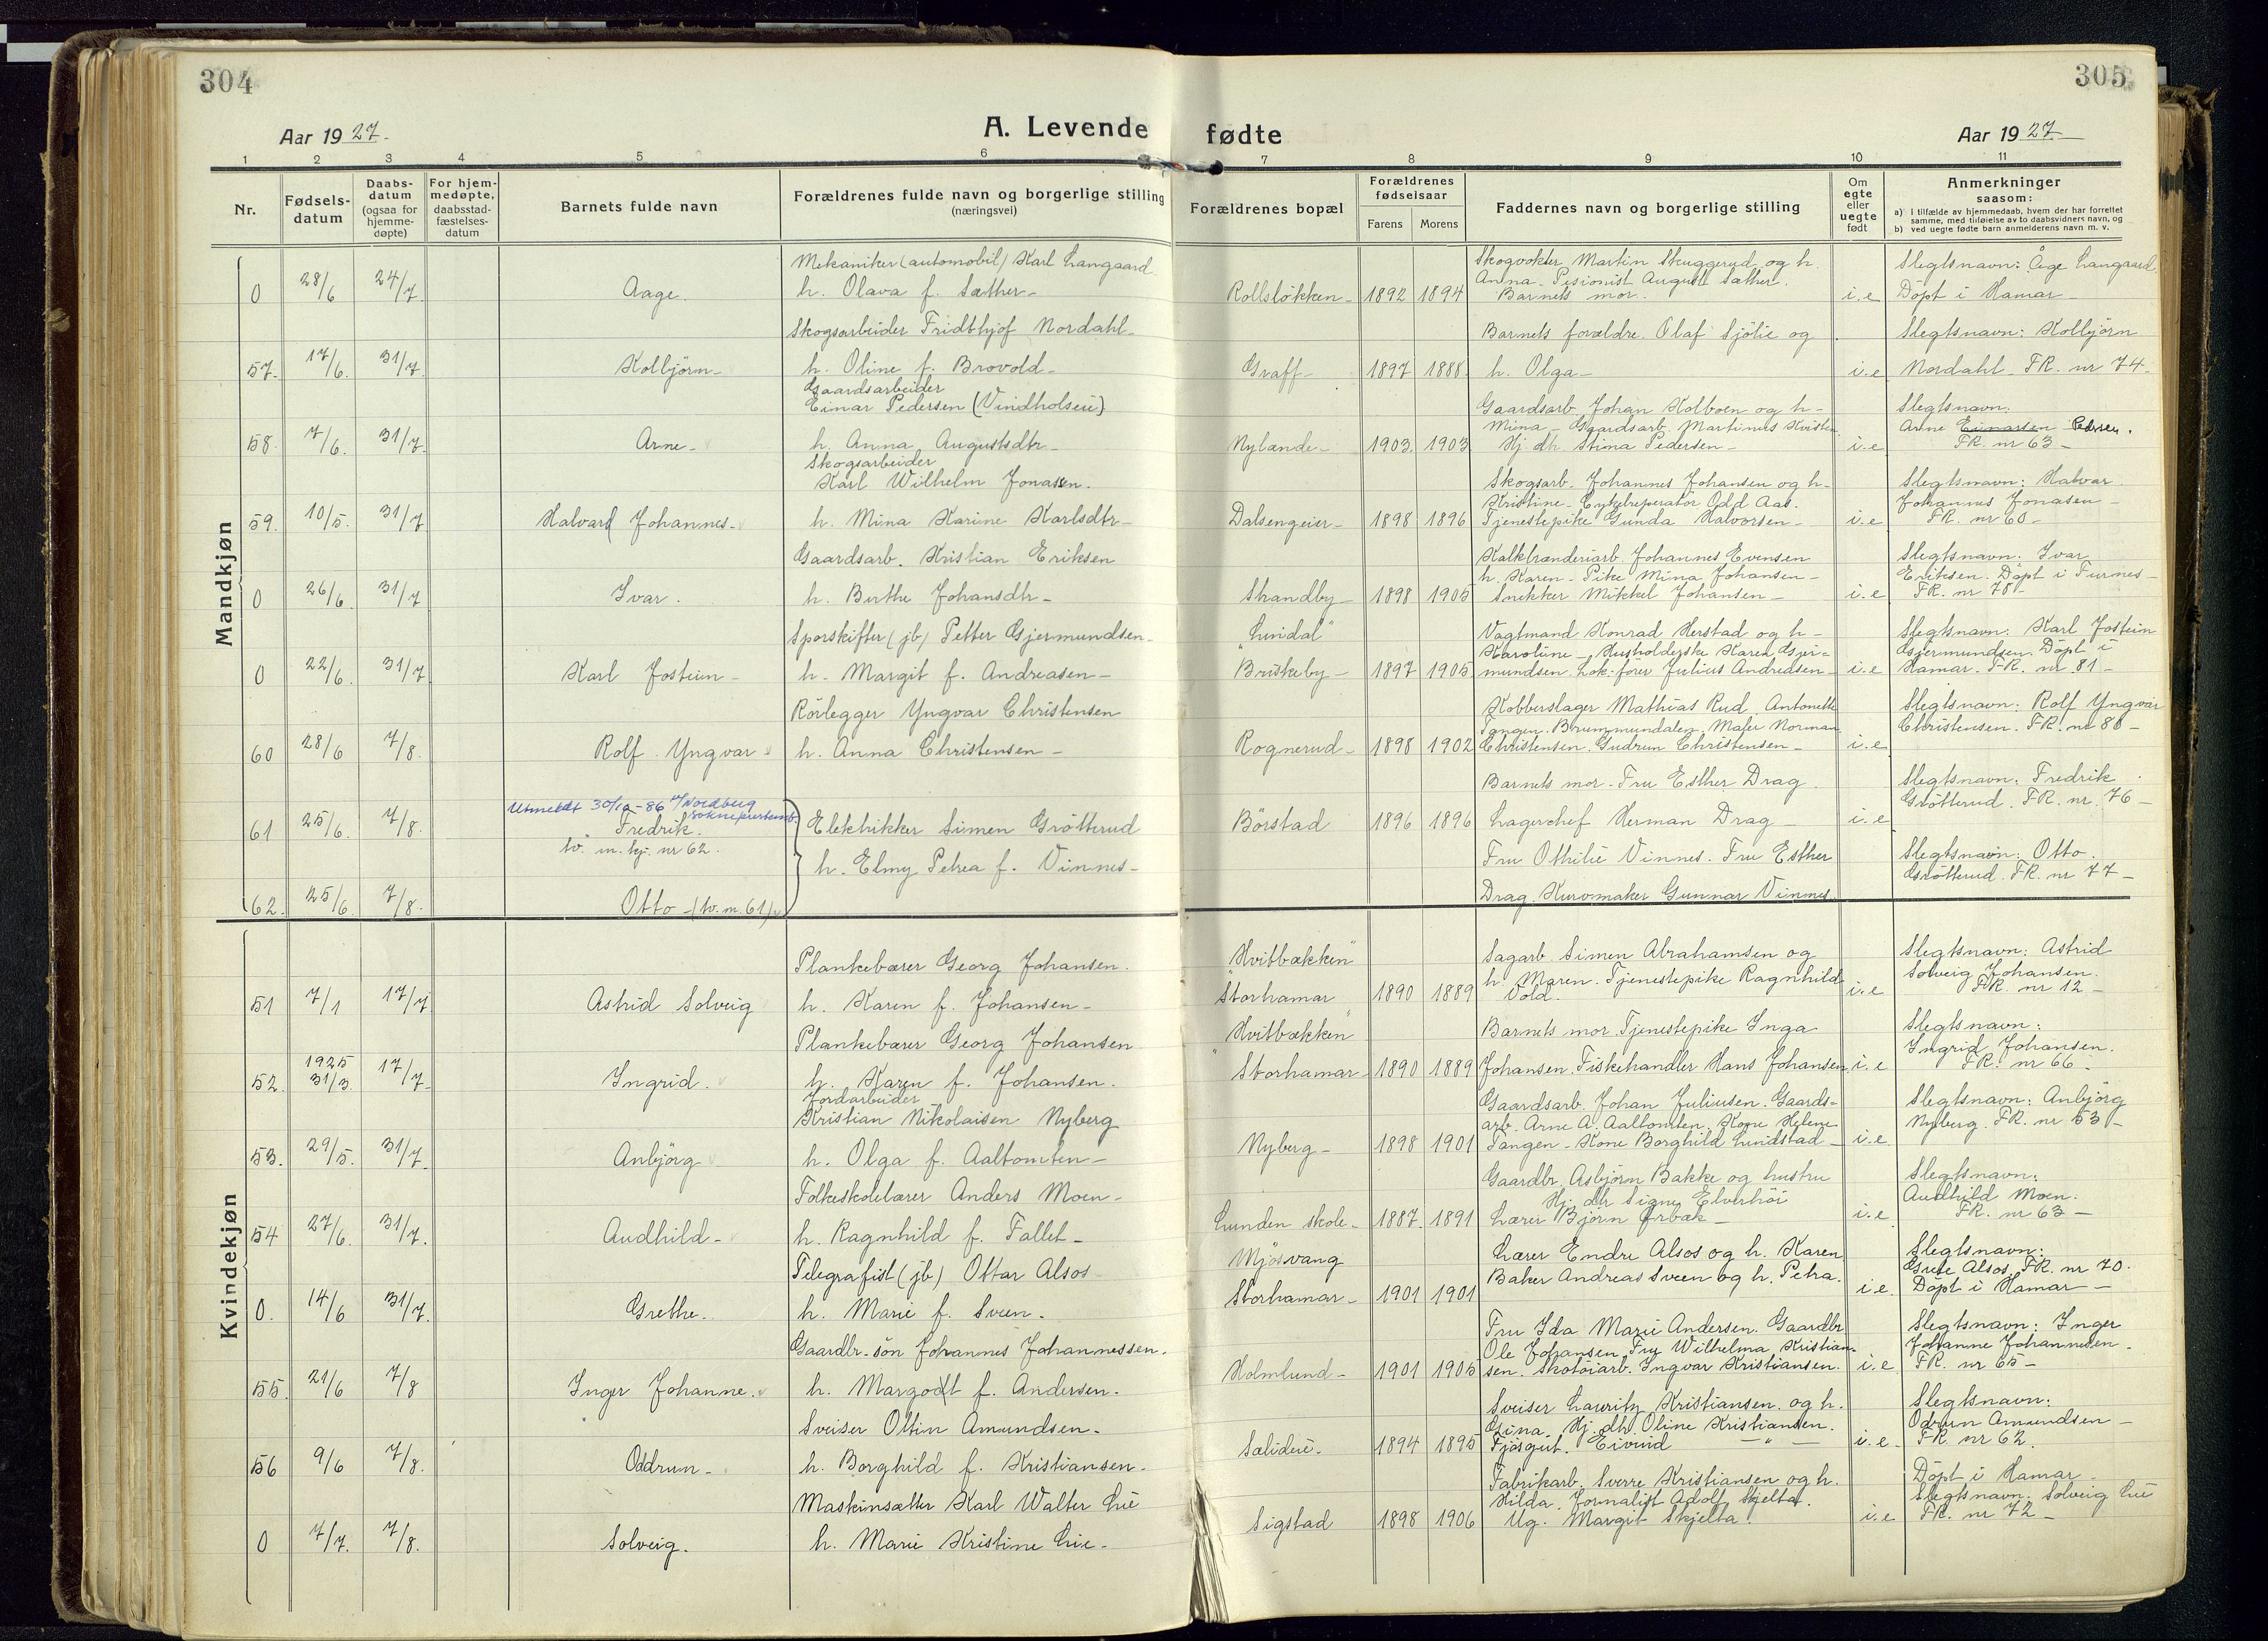 304
305
Aar 1927.
A. Levende fødte
Aar 1927
1 2 3 4 5 6 7 8 9 10 11
Nr.
Fødsels-datum
Daabs-datum (ogsaa for hjemme-døpte)
For hjem-medøpte, daabsstad-fæstelses-datum
Barnets fulde navn
Forældrenes fulde navn og borgerlige stilling (næringsvei)
Forældrenes bopæl
Forældrenes fødselsaar
Farens Morens
Faddernes navn og borgerlige stilling
Om egte eller uegte født
Anmerkninger saasom:
a) i tilfælde av hjemmedaab, hvem der har forrettet samme, med tilføielse av to daabsvidners navn, og
b) ved uegte fødte barn anmelderens navn m. v.
Mandkjøn
Mekaniker (automobil) Karl Langaard
0 28/6 24/7. Aage. h. Olava f. Sæther-
Rollsløkken- 1892 1894
Skogvokter Martin Skuggerud og h.
Anna- Pesionist August Sæther.
Barnets mor.
i.e
Slegtsnavn: Åge Langaard.
Döpt i Hamar-
Skogsarbeider Fridthjof Nordahl-
57. 17/6. 31/7. Kolbjörn- h. Oline f. Brovold-
Graff- 1897 1888
Barnets forældre. Olaf Sjölie og
h. Olga-
i.e
Slegtsnavn: Kolbjörn
Nordahl- FR. nr 74-
Gaardsarbeider
Einar Pedersen (Vindholseie)
58. 7/6. 31/7 Arne- h. Anna Augustsdtr-
Nylænde- 1903 1903
Gaardsarb. Johan Kolboen og h-
Mina- Gaardsarb. Martinus Kristen
Hj. dtr. Stina Pedersen-
i.e
Slegtsnavn:
Arne Einarsen Pedersen.
FR. nr 63-
Skogsarbeider
Karl Wilhelm Jonassen.
59. 10/5. 31/7 Halvard Johannes- h. Mina Karine Karlsdtr-
Dalsengeier- 1898 1896
Skogsarb. Johannes Johansen og h-
Kristine- Cykelreperatør Odd Aas.
Tjenestepike Gunda Halvorsen-
i.e
Slegtsnavn: Halvar
Johannes Jonasen-
FR. nr 60-
Gaardsarb. Kristian Eriksen
0 26/6 31/7 Ivar. h. Berthe Johansdtr-
Strandby- 1898 1905
Kalkbrænderiarb. Johannes Evensen
h. Karen- Pike Mina Johansen-
Snekker Mikkel Johansen-
i.e
Slegtsnavn: Ivar
Eriksen. Döpt i Furnes-
FR. nr 78-
Sporskifter (jb) Petter Gjermundsen-
0 22/6. 31/7 Karl Jostein- h. Margit f. Andreasen-
"Lindal"
Briskeby- 1897 1905
Vagtmand Konrad Herstad og h-
Karoline- Husholderske Karen Gjer-
mundsen. Lok-fører Julius Andreasen-
i.e
Slegtsnavn: Karl Jostein
Gjermundsen. Döpt i
Hamar. FR. nr 81-
Rörlegger Yngvar Christensen
60 28/6 7/8. Rolf Yngvar h. Anna Christensen-
Rognerud- 1898 1902
Kobberslager Mathias Rud. Antonette
Tangen. Brummundalen. Maler Norman
Christensen. Gudrun Christensen-
i.e
Slegtsnavn: Rolf Yngvar
Christensen. FR. nr 80-
Utmeldt 30/10-86 Nordberg
61 25/6. 7/8. Fredrik. tv. m. kj. nr 62.
Elektrikker Simen Gröttrud
Börstad 1896 1896
Barnets mor. Fru Esther Drag
Lagerchef Herman Drag-
i.e
Slegtsnavn: Fredrik
Gröttrud. FR. nr. 76-
h. Elmy Petrea f. Vinnes-
62. 25/6 7/8. Otto-(tv. m. 61)
Fru Othilie Vinnes. Fru Esther
Drag. Kurvmaker Gunnar Vinnes.
Slegtsnavn: Otto.
Gröttrud. FR. nr 77-
Kvindekjøn
Plankebærer Georg Johansen.
51 7/1 17/7 Astrid Solveig h. Karen f. Johansen-
"Hvitbækken"
Storhamar 1890 1889
Sagarb Simen Abrahamsen og
h. Maren. Tjenestepike Ragnhild
Vold.
i.e
Slegtsnavn: Astrid
Solveig Johansen.
FR. nr 12-
Plankebærer Georg Johansen
52. 1925 31/3. 17/7- Ingrid. h. Karen f. Johansen.
"Hvitbækken"
Storhamar- 1890 1889
Barnets mor. Tjenestepike Inga
Johansen. Fiskehandler Hans Johansen.
i.e
Slegtsnavn:
Ingrid Johansen.
FR. nr 66-
Jordarbeider
Kristian Nikolaisen Nyberg
53. 29/5. 31/7. Anbjörg h. Olga f. Aaltomten-
Nyberg- 1898 1901
Gaardsarb. Johan Juliusen. Gaards=
arb. Arne A. Aaltomten. Kone Helene
Tangen- Kone Borghild Lundstad-
i.e
Slegtsnavn: Anbjörg
Nyberg. FR. nr 53-
Folkeskolelærer Anders Moen-
54 27/6. 31/7. Audhild- h. Ragnhild f. Fallet-
Lunden skole- 1887. 1891
Gaardbr. Asbjörn Bakke og hustru
Hj. dtr Signe Elverhöi
Lærer Björn Ørbæk-
i.e
Slegtsnavn:
Audhild Moen.
FR. nr 63-
Telegrafist (jb) Ottar Alsos
0. 14/6 31/7. Grethe. h. Marie f. Sveen.
Mjösvang
Storhamar- 1901 1901
Lærer Endre Alsos og h. Karen
Baker Andreas Sveen og h. Petra.
i.e.
Slegtsnavn:
Grete Alsos. FR. nr 70.
Döpt i Hamar-
Gaardbr-sön Johannes Johannessen.
55. 21/6 7/8 Inger Johanne. h. Margodt f. Andersen.
Holmlund- 1901 1905
Fru Ida Marie Andersen. Gaardbr
Ole Johansen. Fru Wilhelma Kristian-
sen. Skotöiarb. Ingvar Kristiansen.
i.e
Slegtsnavn: Inger
Johanne Johannesen.
FR. nr 65-
Sveiser Oltin Amundsen.
56 9/6 7/8. Oddrun- h. Borghild f. Kristiansen-
Sælidiè. 1894 1895
Sveiser Lauritz Kristiansen. og h.
Gina. Hj. dtr. Oline Kristiansen.
Fjösgut. Eivind - " -
i.e.
Slegtsnavn:
Odrun Amundsen-
FR. nr 62.
Maskinsætter Karl Walter Lie
0 7/7. 7/8. Solveig. h. Marie Kristine Lie.
Sigstad 1898 1906
Fabrikarb. Sverre Kristiansen og h.
Hilda. Jornalist Adolf Skjelta.
Ug. Margit Skjelta.
i.e
Döpt i Hamar-
Slegtsnavn: Solveig Lie
FR. nr 72-